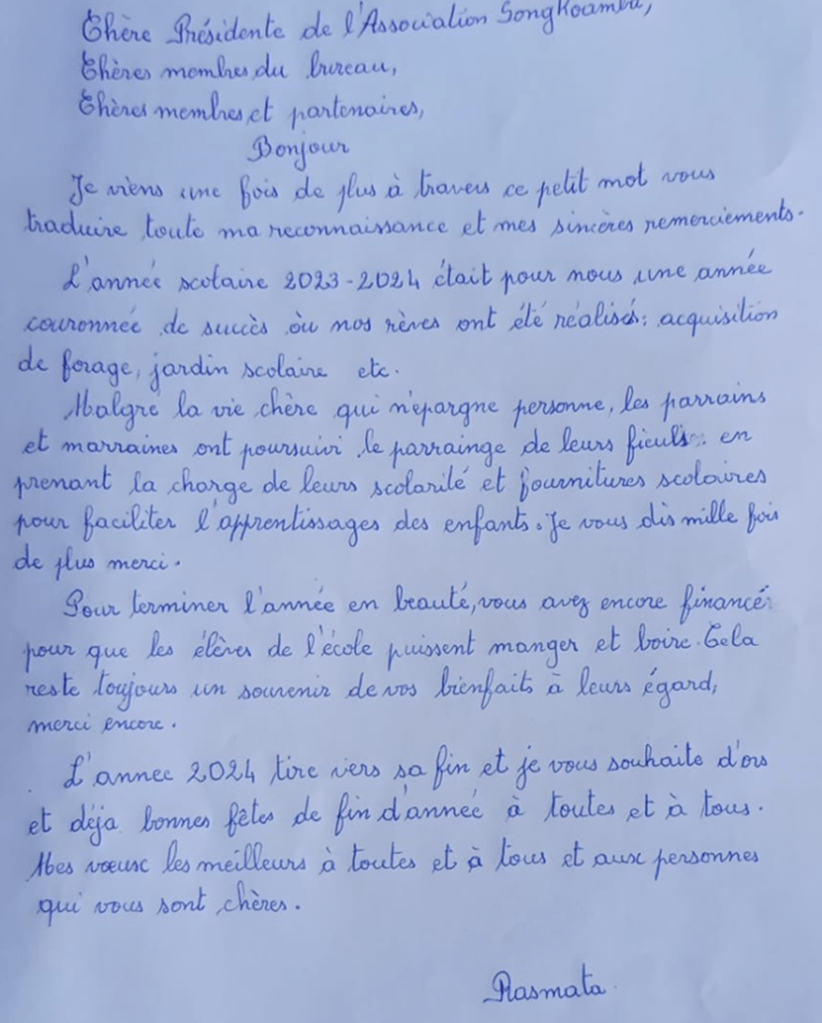 Chère Présidente de l'Association Songkoamba,
Chères membres du bureau,
Chères membres et partenaires,
Bonjour
Je viens une fois de plus à travers ce petit mot vous
traduire toute ma reconnaissance et mes sincères remerciements.
L'année scolaire 2023-2024 était pour nous une année
couronnée de succès où nos rêves ont été réalisés: acquisition
de forage, jardin scolaire etc.
Malgré la vie chère qui n'épargne personne, les parrains
et marraines ont poursuivi le parrainge de leurs fieuls en
prenant la charge de leurs scolarité et fournitures scolaires
pour faciliter l'apprentissages des enfants. Je vous dis mille fois
de plus merci.
Pour terminer l'année en beauté, vous avez encore financé
pour que les élèves de l'école puissent manger et boire. Cela
reste toujours un souvenir de vos bienfaits à leurs égard,
merci encore.
L'annee 2024 tire vers sa fin et je vous souhaite d'ors
et déja bonnes fêtes de fin d'année à toutes et à tous.
Mes vœux les meilleurs à toutes et à tous et aux personnes
qui vous sont chères.
Rasmata